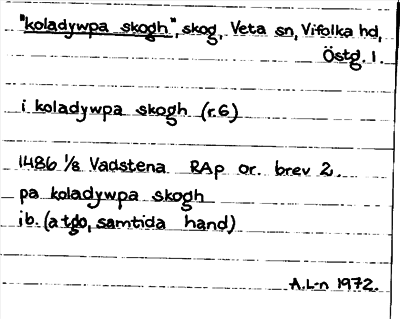 "koladywpa skogh", skog, Veta sn, Vifolka hd,
Östg. l.
i koladywpa skogh (r. 6)
1486 1/8 Vadstena RAp or. brev 2.
pa koladywpa skogh
ib. (a tgo, samtida hand)
A.L-n 1972.